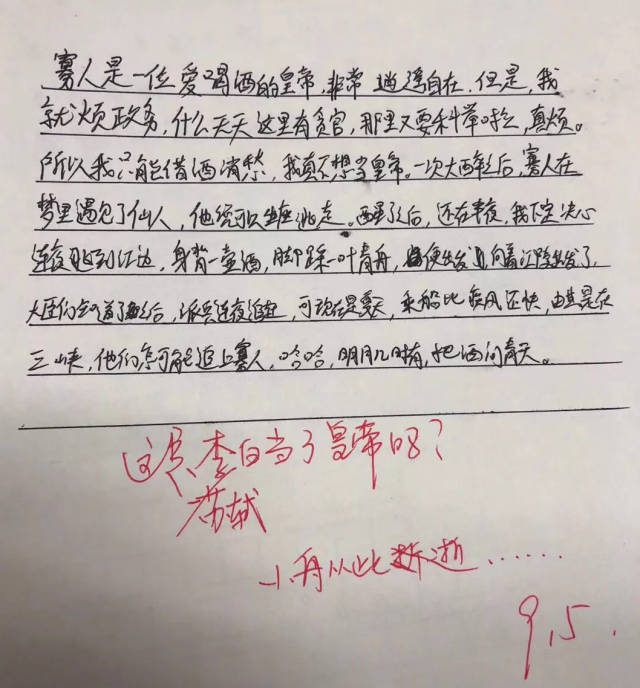 寡人是一位爱喝酒的皇帝,非常逍遥自在,但是,我
就烦政务,什么天天这里有贪官,那里又要科举啦,真烦。
所以我只能借酒消愁,我真不想当皇帝。一次大醉后,寡人在
梦里遇见了仙人,他说可以坐在逃走。酒醒了后,还在半夜,我下定决心
连夜赶到江边,身背一壶酒,脚踩一叶青舟,便出发向着江陵出发了,
大臣们知道了之后,派兵连夜追赶,可现在是夏天,乘船比疾风还快,由其是在
三峡,他们怎可能追上寡人,哈哈,明月几时有,把酒问青天。
这是李白当了皇帝吧?
苏轼
小舟从此逝……
9.5.